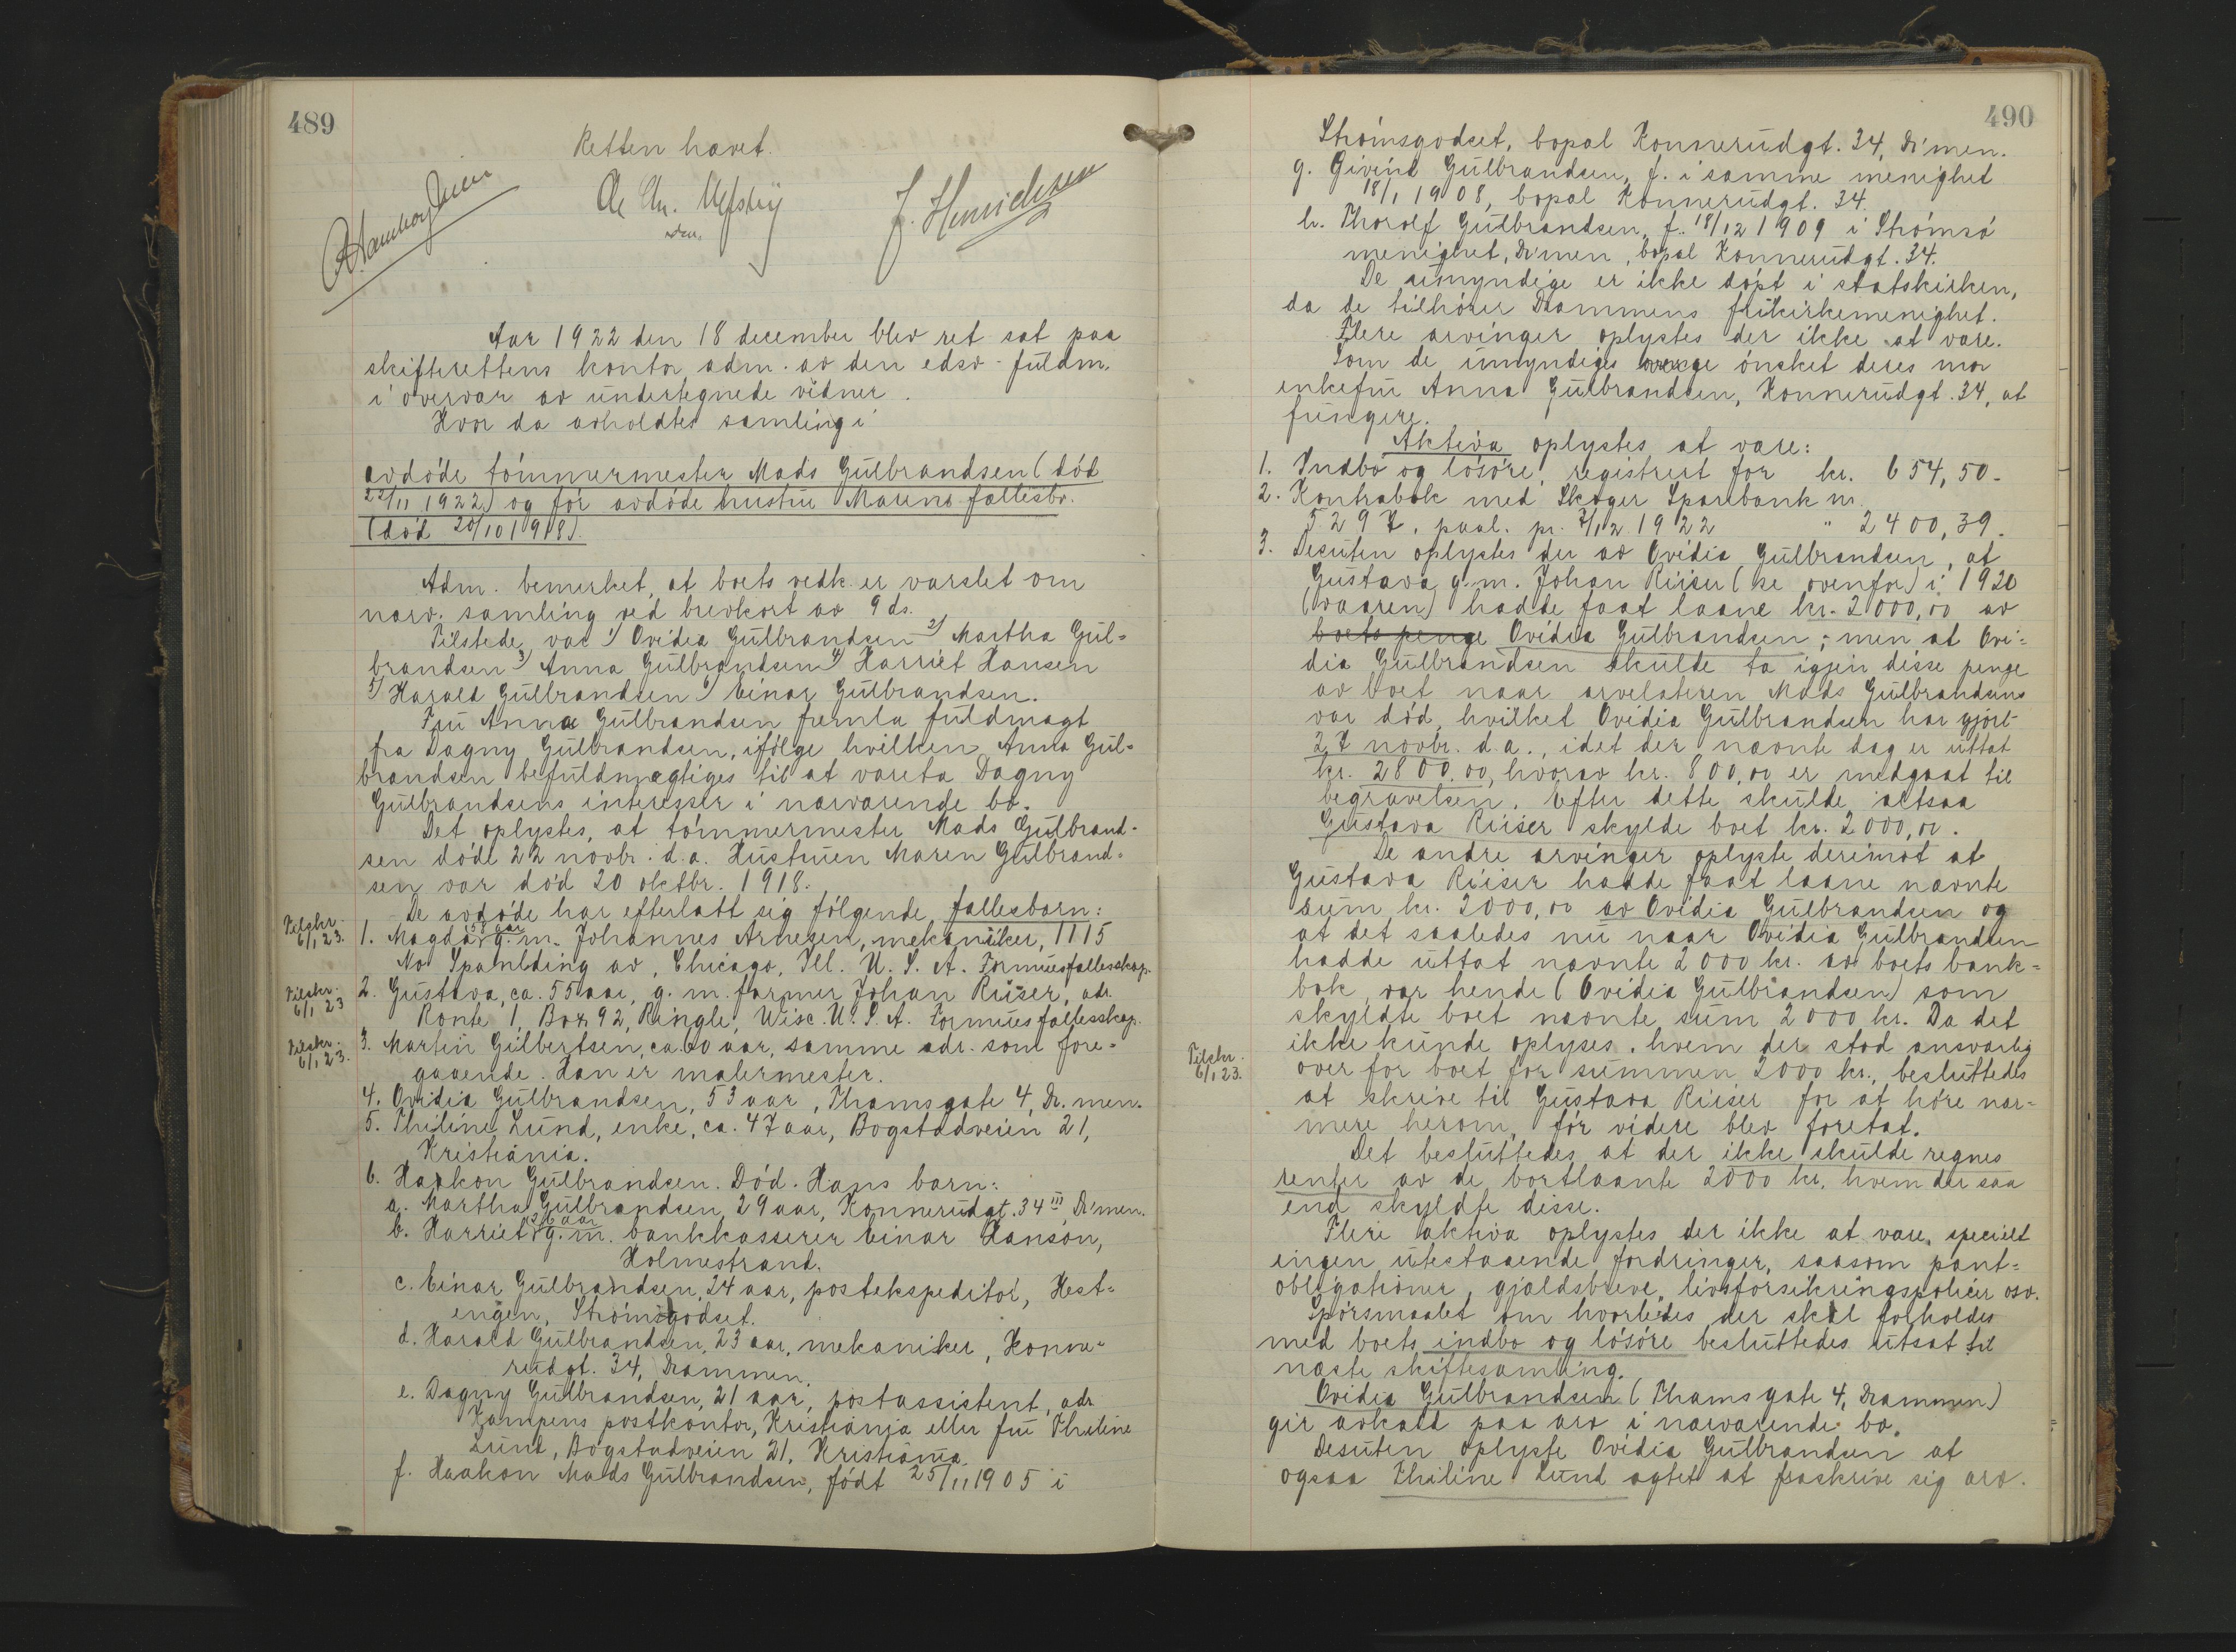 489
Retten hævet.
J. Henrichsen
Aar 1922 den 18 december blev ret sat paa
skifterettens kontor adm. av den edsv. fuldm.
i overvær av undertegnede vidner.
Hvor da avholdtes samling i
avdøde tømmermester Mads Gulbrandsen (død
22/11 1922) og før avdøde hustru Marens fællesbo.
(død 20/10 1918).
Adm. bemerket, at boets vedk. er varslet om
nærv. samling ved brevkort av 9 ds.
Tilstede var 1) Ovidia Gulbrandsen 2) Martha Gul=
brandsen 3) Anna Gulbrandsen 4) Harriet Hansen
5) Harald Gulbrandsen 6) Einar Gulbrandsen.
Fru Anna Gulbrandsen fremla fuldmagt
fra Dagny Gulbrandsen, ifølge hvilken Anna Gul=
brandsen befuldmægtiges til at vareta Dagny
Gulbrandsens interesser i nærværende bo.
Det oplystes, at tømmermester Mads Gulbrand-
sen døde 22 novbr. d.a. Hustruen Maren Gulbrand=
sen var død 20 oktbr. 1918.
De avdøde har efterlatt sig følgende fællesbarn:
Tilskr. 6/1 23. 1. Magda, 58 aar g. m. Johannes Arnesen, mekaniker, 1115
No Spaulding av, Chicago, Ill. U. S. A. Formuesfællesskap.
Tilskr. 6/1 23 2. Gustava, ca. 55 aar, g. m. farmer Johan Riiser, adr.
Ronte 1, Box 92, Ringle, Wisc. U. S. A. Formuesfællesskap.
Tilskr. 6/1 23. 3. Martin Gilbertsen, ca. 60 aar, samme adr. som fore=
gaaende. Han er malermester.
4. Ovidia Gulbrandsen, 53 aar, Thamsgate 4, Dr. men.
5. Thiline Lund, enke, ca. 47 aar, Bogstadveien 21,
Kristiania.
6. Haakon Gulbrandsen. Død. Hans barn:
a. Martha Gulbrandsen, 29 aar, Konnerudgt. 34 III, Dr'men.
b. Harriet, 26 aar g. m. bankkasserer Einar Hanson,
Holmestrand.
c. Einar Gulbrandsen, 24 aar, postekspeditør, Hest=
engen, Strømsgodset.
d. Harald Gulbrandsen, 23 aar, mekaniker, Konne=
rudgt. 34, Drammen.
e. Dagny Gulbrandsen, 21 aar, postassistent, adr.
Kampens postkontor, Kristiania eller fru Thiline
Lund, Bogstadveien 21, Kristiania.
f. Haakon Mads Gulbrandsen, født 25/11 1905 i
490
Strømsgodset, bopæl Konnerudgt. 34, Dr'men.
g. Eivind Gulbrandsen, f. i samme menighet
18/1 1908, bopæl Konnerudgt. 34.
h. Thorolf Gulbrandsen, f. 18/12 1909 i Strømsø
menighet, Dr'men, bopæl Konnerudgt. 34.
De umyndige er ikke døpt i statskirken,
da de tilhører Drammens frikirkemenighet.
Flere arvinger oplystes der ikke at være.
Som de umyndiges verge ønsket deres mor
enkefru Anna Gulbrandsen, Konnerudgt. 34, at
fungere.
Aktiva oplystes at være:
1. Indbo og løsøre, registrert for kr. 654,50.
2. Kontrabok med Skoger Sparebank nr.
5297, paal. pr. 7/12 1922 " 2400,39.
3. Desuten oplystes der av Ovidia Gulbrandsen, at
Gustava g. m. Johan Riiser (se ovenfor) i 1920
(vaaren) hadde faat laane kr. 2000,00 av
boets penge Ovidia Gulbrandsen; men at Ovi=
dia Gulbrandsen skulde ta igjen disse penge
av boet naar arvelateren Mads Gulbrandsens
var død, hvilket Ovidia Gulbrandsen har gjort
27 novbr. d.a., idet der nævnte dag er uttat
kr. 2800,00, hvorav kr. 800,00 er medgaat til
begravelsen. Efter dette skulde altsaa
Gustava Riiser skylde boet kr. 2000,00.
De andre arvinger oplyste derimot at
Gustava Riiser hadde faat laane nævnte
sum kr. 2000,00 av Ovidia Gulbrandsen og
at det saaledes nu naar Ovidia Gulbrandsen
hadde uttat nævnte 2000 kr. av boets bank=
bok, var hende (Ovidia Gulbrandsen) som
skyldte boet nævnte sum 2000 kr. Da det
ikke kunde oplyses, hvem der stod ansvarlig
Tilskr. 6/1 23. overfor boet for summen 2000 kr., besluttedes
at skrive til Gustava Riiser for at høre nær=
mere herom, før videre blev foretat.
Det besluttedes at der ikke skulde regnes
renter av de bortlaante 2000 kr. hvem der saa
end skyldte disse.
Flere aktiva oplystes der ikke at være, specielt
ingen utestaaende fordringer, saasom pant=
obligationer, gjældsbreve, livsforsikringspolicer osv.
Spørsmaalet om hvorledes der skal forholdes
med boets indbo og løsøre besluttedes utsat til
næste skiftesamling.
Ovidia Gulbrandsen (Thamsgate 4, Drammen)
gir avkald paa arv i nærværende bo.
Desuten oplyste Ovidia Gulbrandsen at
ogsaa Thiline Lund agtet at fraskrive sig arv.